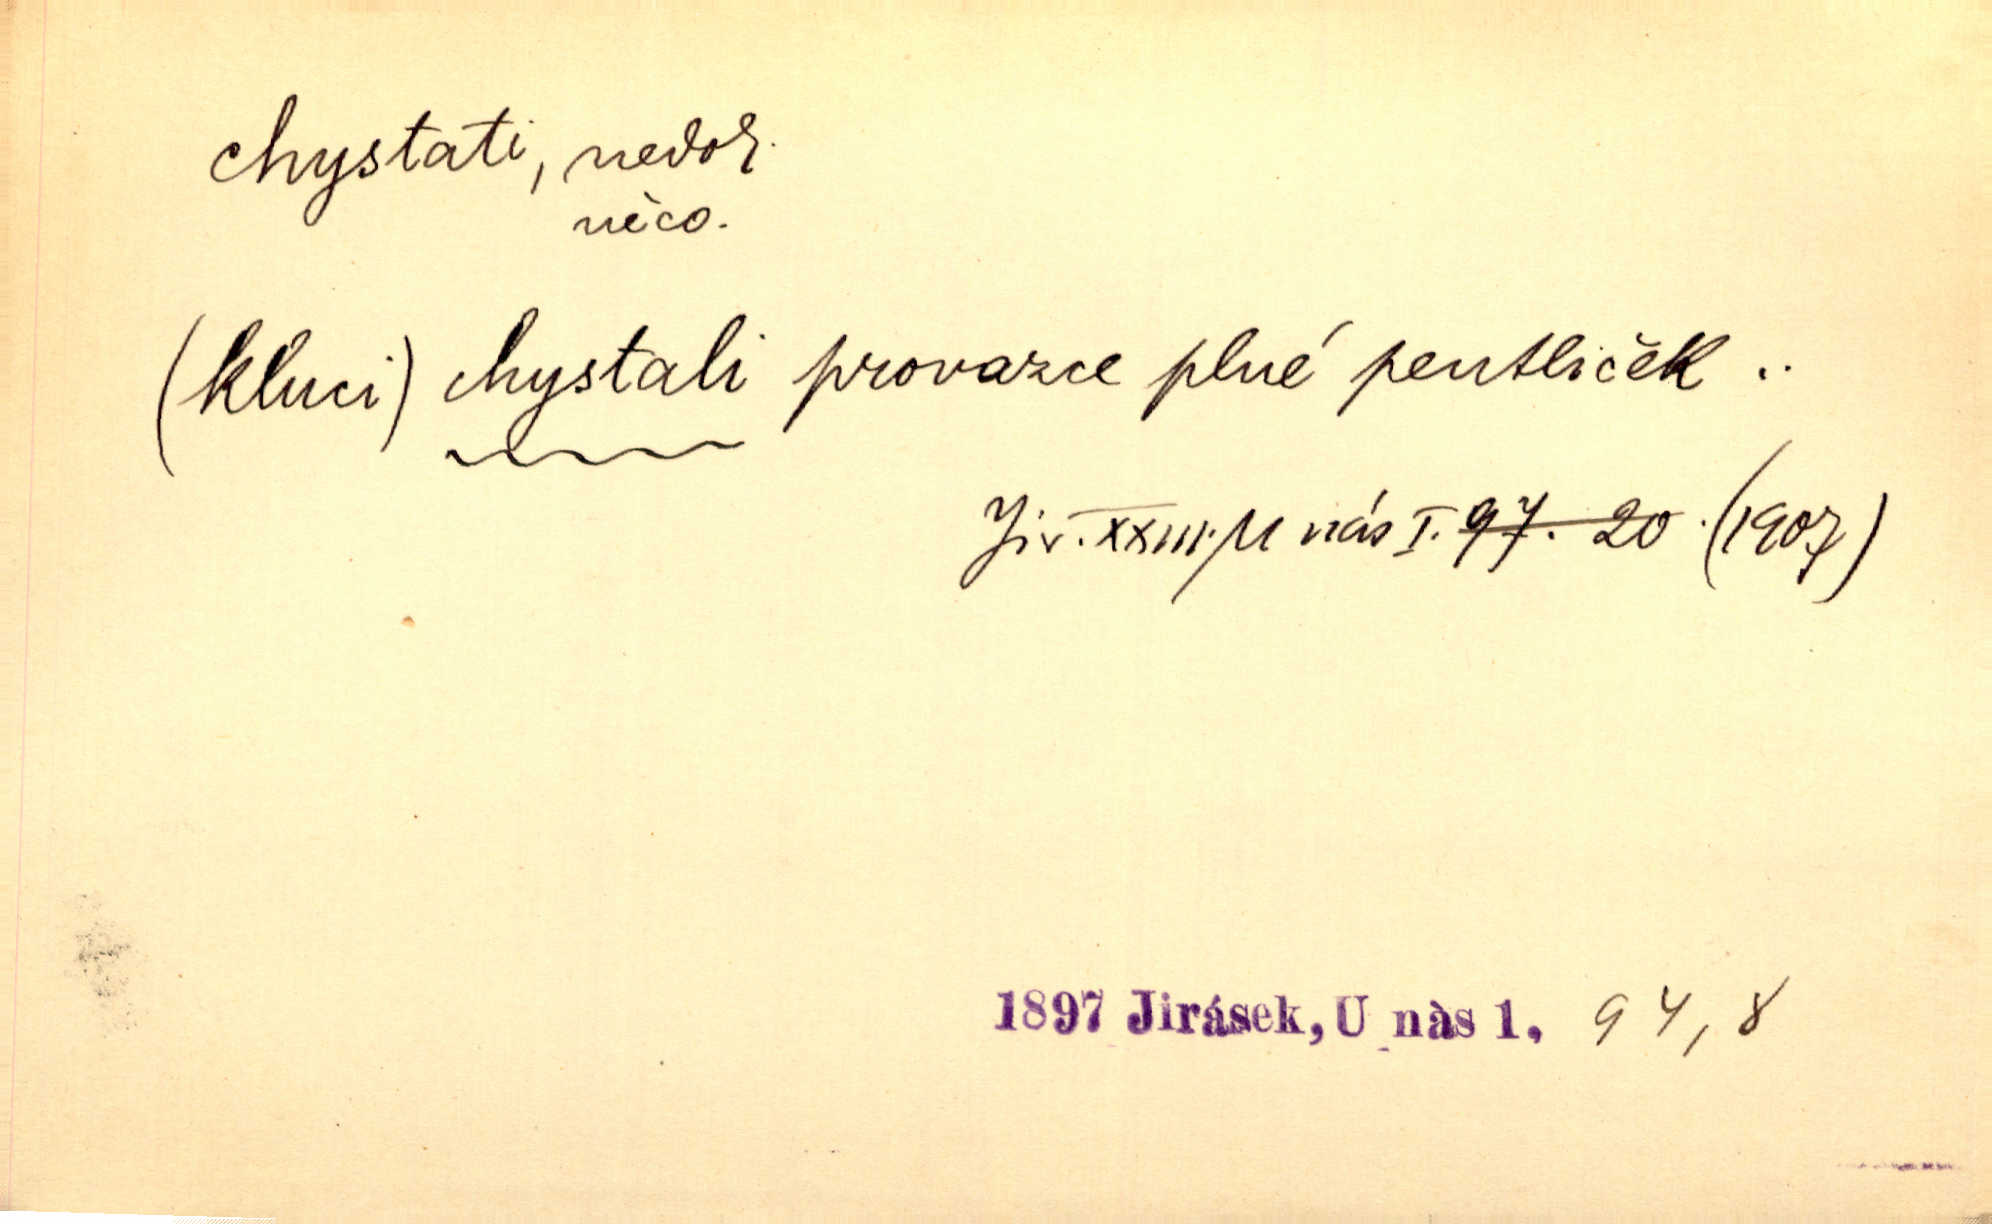 chystati, nedok.
něco.
(kluci) chystali provazce plné pentliček ..
Jir. XXIII. U nás I. 97. 20. (1907)
1897 Jirásek, U nàs 1, 94,8